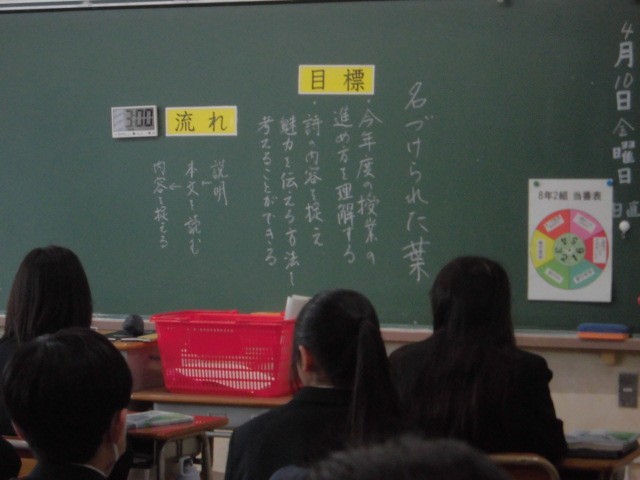 4月10日金曜日
日直
名づけられた葉
目標
・今年度の授業の
進め方を理解する
・詩の内容を捉え
魅力を伝える方法を
考えることができる
流れ
説明
↓
本文を読む
↓
内容を捉える
3:00
8年2組 当番表